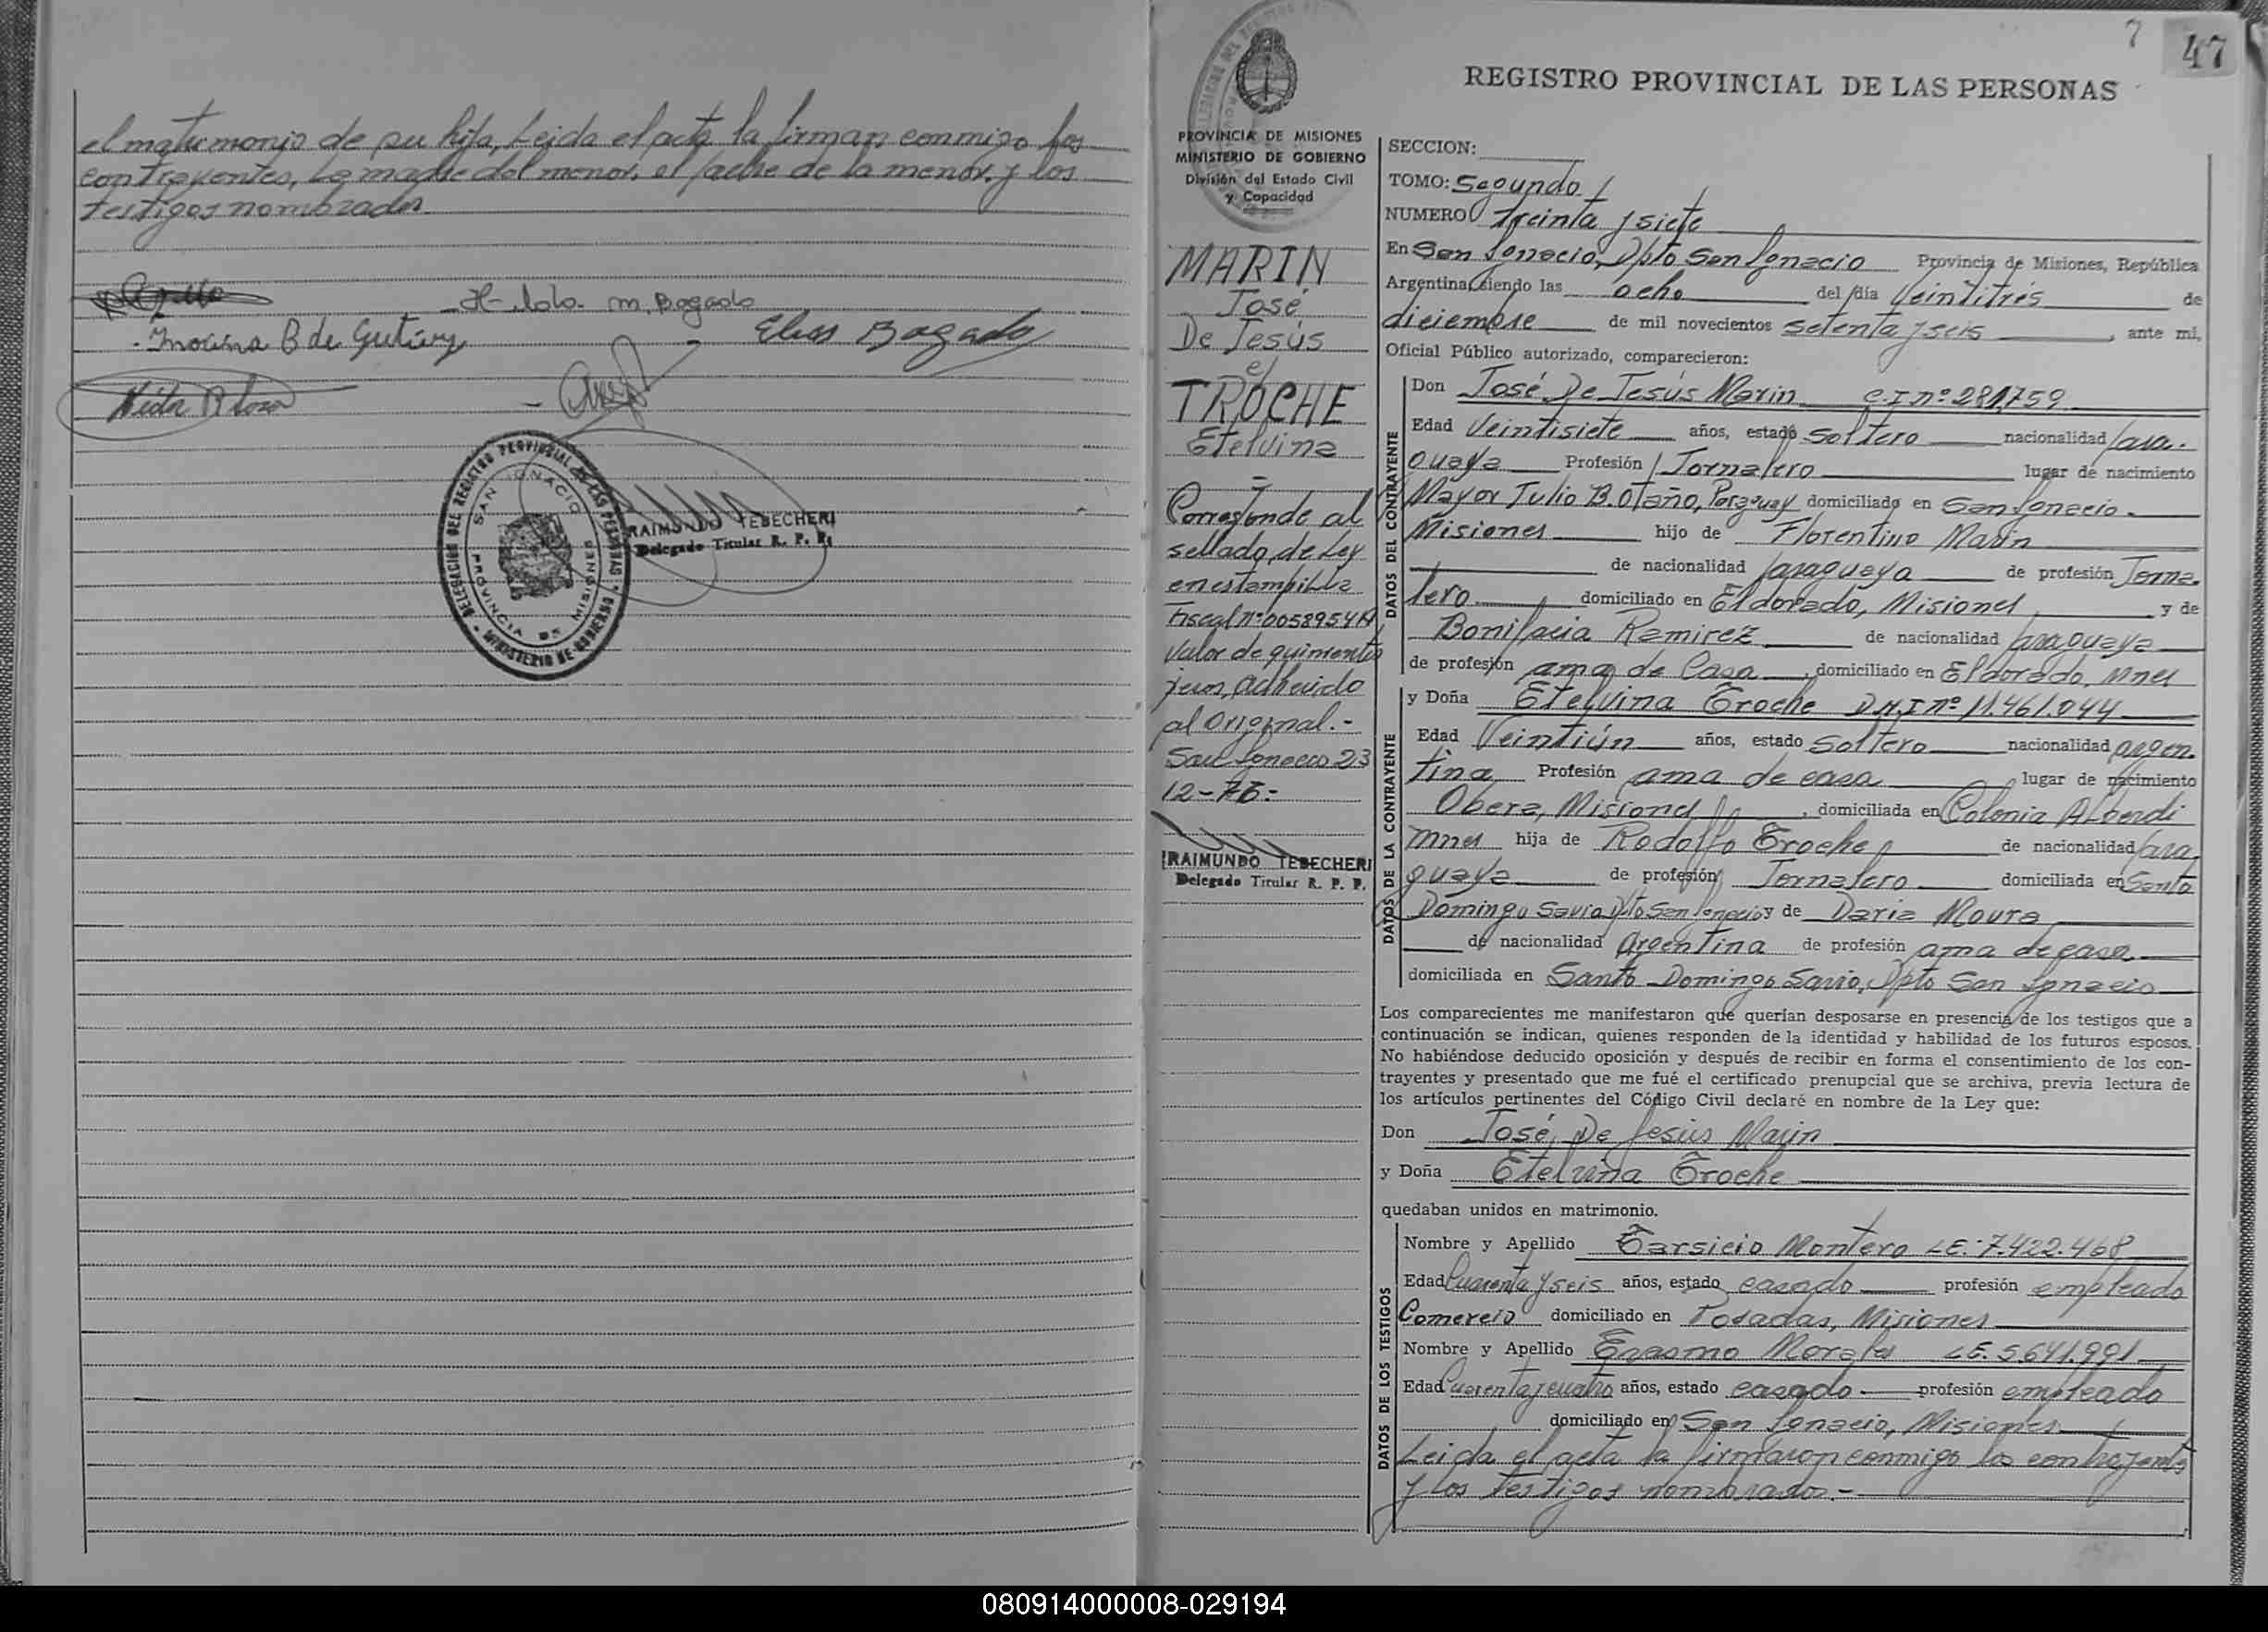 el matrimonio de su hija, Leida el acta la firman conmigo los
contrayentes, La madre del menor, el padre de la menor, y los
testigos nombrados
M. Bogado
Elias Bogado
B de
DELEGACION DEL REGISTRO PROVINCIAL DE LAS PERSONAS
SAN IGNACIO
PROVINCIA DE MISIONES
MINISTERIO DE GOBIERNO
RAIMUNDO TEBECHERI
Delegado Titular R. P. P.
7
47
REGISTRO PROVINCIAL DE LAS PERSONAS
PROVINCIA DE MISIONES
MINISTERIO DE GOBIERNO
División del Estado Civil
y Capacidad
MARIN
José
De Jesús
e/
TROCHE
Etelvina
=
Corresponde al
sellado, de Ley
en estampilla
Fiscal nº 0058954A
Valor de quinientos
pesos, adherido
al Original.-
San Ignacio 23
12-76=
RAIMUNDO TEBECHERI
Delegado Titular R. P. P.
SECCION:
TOMO: Segundo
NUMERO Treinta y siete
En San Ignacio, Dpto San Ignacio Provincia de Misiones, República
Argentina, siendo las ocho del día Veintitrés de
diciembre de mil novecientos setenta y seis, ante mi,
Oficial Público autorizado, comparecieron:
DATOS DEL CONTRAYENTE
Don José De Jesús Marin C.I nº 281,759
Edad Veintisiete años, estado soltero nacionalidad para-
guaya Profesión Jornalero lugar de nacimiento
Mayor Julio B. Otaño, Paraguay domiciliado en San Ignacio -
Misiones hijo de Florentino Marin
de nacionalidad paraguaya de profesión Jorna-
lero domiciliado en Eldorado, Misiones y de
Bonifacia Ramirez de nacionalidad paraguaya
de profesión ama de Casa, domiciliado en Eldorado, Mnes
DATOS DE LA CONTRAYENTE
y Doña Etelvina Troche D.N.I nº 11.461.044
Edad Veintiún años, estado soltero nacionalidad argen-
tina Profesión ama de casa lugar de nacimiento
Obera, Misiones, domiciliada en Colonia Alberdi
Mnes hija de Rodolfo Troche de nacionalidad para
guaya de profesión Jornalero domiciliada en Santo
Domingo Savio, Dpto San Ignacio y de Daria Moura
de nacionalidad Argentina de profesión ama de casa
domiciliada en Santo Domingo Savio, Dpto San Ignacio
Los comparecientes me manifestaron que querían desposarse en presencia de los testigos que a
continuación se indican, quienes responden de la identidad y habilidad de los futuros esposos.
No habiéndose deducido oposición y después de recibir en forma el consentimiento de los con-
trayentes y presentado que me fué el certificado prenupcial que se archiva, previa lectura de
los artículos pertinentes del Código Civil declaré en nombre de la Ley que:
Don José, De Jesús Marin
y Doña Etelvina Troche
quedaban unidos en matrimonio.
DATOS DE LOS TESTIGOS
Nombre y Apellido Tarsicio Montero LE. 7.422.468
Edad Cuarenta y seis años, estado casado profesión empleado
Comercio domiciliado en Posadas, Misiones
Nombre y Apellido Erasmo Morales LE. 5.641.991
Edad Cuarenta y cuatro años, estado casado - profesión empleado
domiciliado en San Ignacio, Misiones
Leida el acta la firmaron conmigo los contrayentes
y los testigos nombrados.-
080914000008-029194